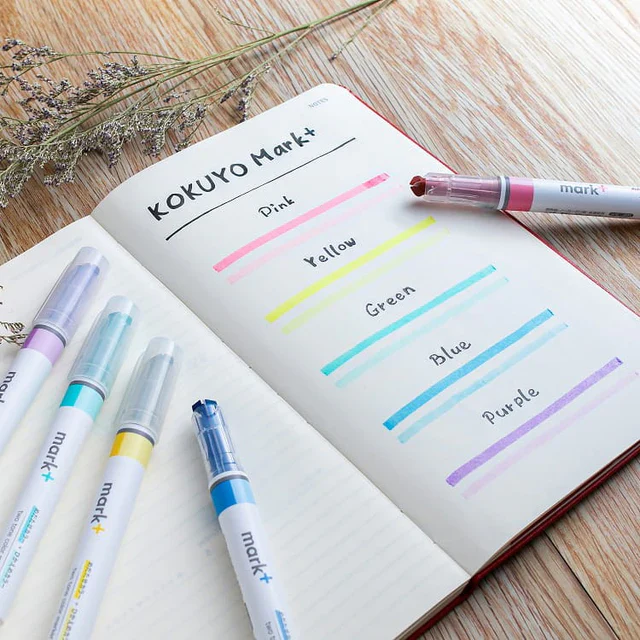 NOTES
KOKUYO Mark+
Pink
Yellow
Green
Blue
Purple
mark+
mark+
mark+
mark+
mark